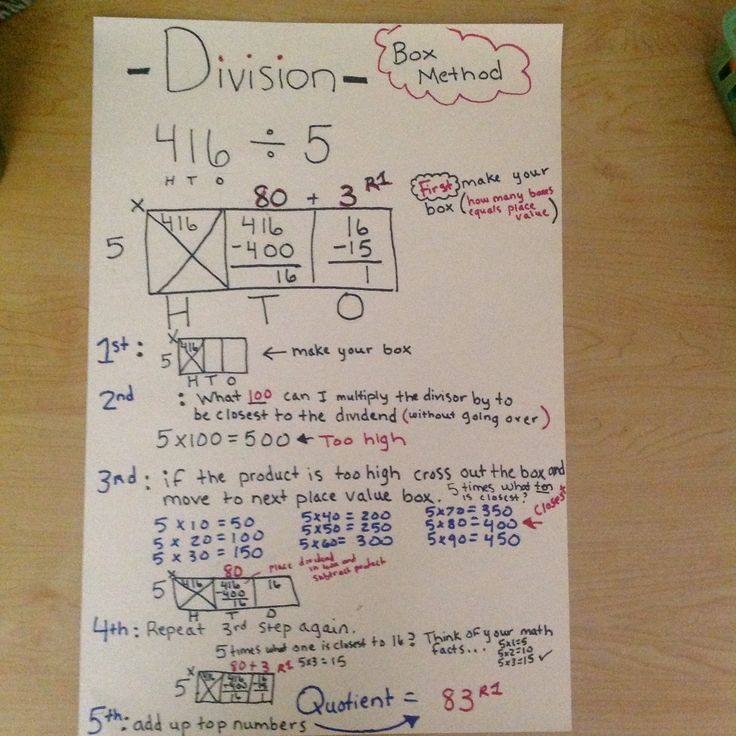 - Division -
Box
Method
416 ÷ 5
H T O
First make your
box (how many boxes
equals place
value)
80 + 3 R1
X
5
416
416
-400
16
16
-15
1
H T O
1st: X 5 416 ← make your box
H T O
2nd : What 100 can I multiply the divisor by to
be closest to the dividend (without going over)
5x100 = 500 ← Too high
3rd: if the product is too high cross out the box and
move to next place value box. 5 times what ten
is closest?
5 x 10 = 50
5 x 20 = 100
5 x 30 = 150
5x40 = 200
5x50 = 250
5x60 = 300
5x70 = 350
5x80 = 400 ← Closest
5x90 = 450
80 Place dividend
in box and
subtract product
X
5 416 416 16
-400
16
H T O
4th: Repeat 3rd step again.
5 times what one is closest to 16? Think of your math
facts...
5x1=5
5x2=10
5x3=15 ✓
80+3 R1 5x3=15
X
5 416 416 16
-400 -15
16 1
Quotient = 83 R1
5th: add up top numbers